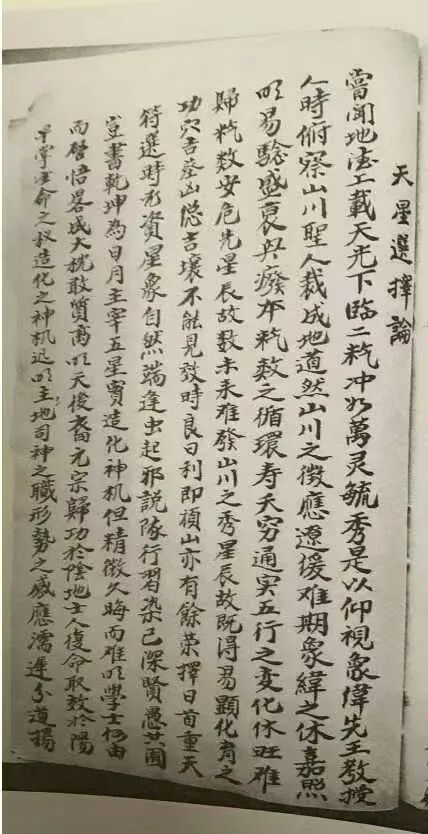 天星選擇論
當闻地法上載天光下臨二炁冲和萬灵毓秀是以仰視象偉先王教授
人時俯察山川聖人裁成地道然山川之徵應遼缓难期象緯之休嘉照
明易驗盛衰兴癈本炁数之循環寿夭穷通实五行之变化休旺难
歸炁数安危先星辰故数未来难發山川之秀星辰故既得易顯化育之
功穴吉塟凶隐吉壤不能見效時良日利即禎山亦有餘荣擇日首重天
符選時形資星象自然端逢虫起邪說隊行習染已深賢愚共囿
豈書乾坤為日月主宰五星實造化神机但精微久晦而难明學士何由
而啓悟畧成大枕敢質高明天後裔元宗歸功於陰地士人復命取效於陽
早孛生命之权造化之神机迟明主地司神之職形勢之感應濡遲分道揚